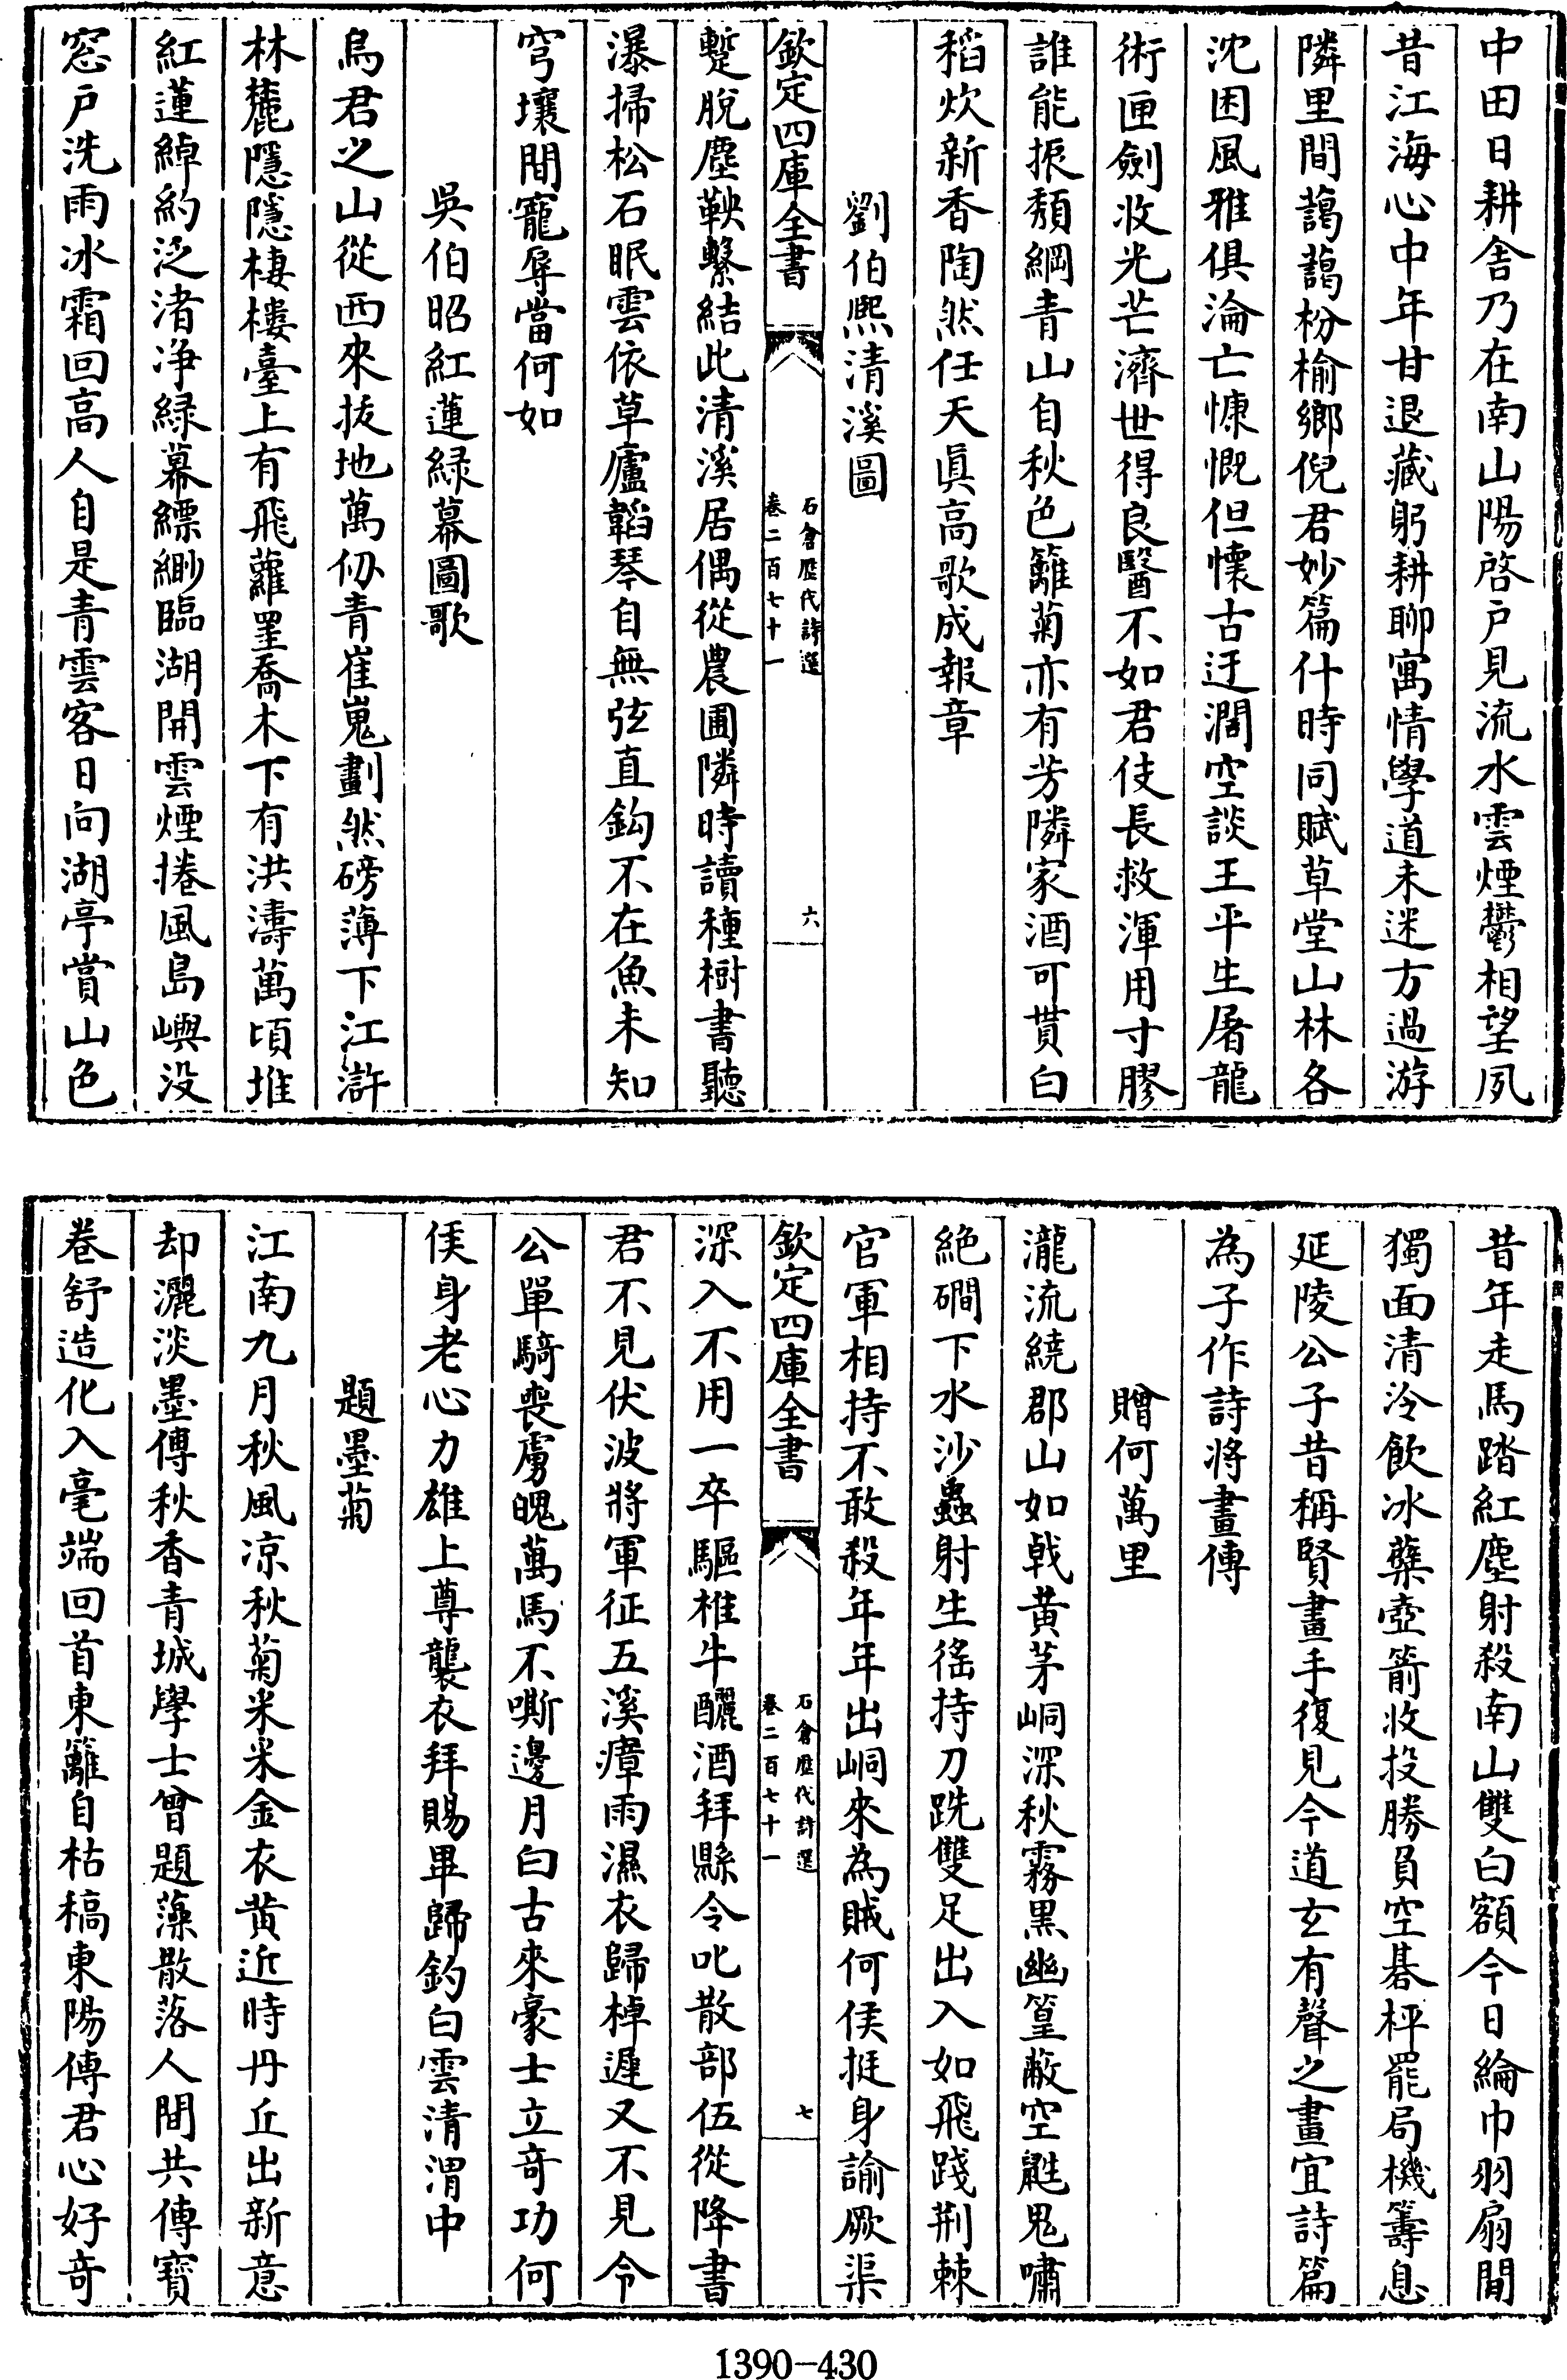 中田日耕舍乃在南山陽啓户見流水雲煙鬱相望夙
昔江海心中年甘退藏躬耕聊寓情學道未迷方過游
隣里間藹藹枌榆鄉倪君妙篇什時同賦草堂山林各
沈困風雅俱淪亡慷慨但懷古迂濶空談王平生屠龍
術匣劍收光芒濟世得良醫不如君伎長救渾用寸膠
誰能振頽綱青山自秋色籬菊亦有芳隣家酒可貰白
稻炊新香陶然任天真高歌成報章
劉伯熙清溪圖
欽定四庫全書
石倉歷代詩選
卷二百七十一
六
蹔脫塵鞅繫結此清溪居偶從農圃隣時讀種樹書聽
瀑掃松石眠雲依草廬韜琴自無弦直鈎不在魚未知
穹壤間寵辱當何如
吳伯昭紅蓮緑幕圖歌
烏君之山從西來拔地萬仞青崔嵬劃然磅薄下江滸
林麓隱隱棲樓臺上有飛蘿罣喬木下有洪濤萬頃堆
紅蓮綽約泛渚净緑幕縹緲臨湖開雲煙捲風島嶼没
窓户洗雨冰霜回高人自是青雲客日向湖亭賞山色
昔年走馬踏紅塵射殺南山雙白額今日綸巾羽扇間
獨面清泠飲冰蘖壺箭收投勝負空碁枰罷局機籌息
延陵公子昔稱賢畫手復見今道玄有聲之畫宜詩篇
為子作詩將畫傳
贈何萬里
瀧流繞郡山如戟黄茅峒深秋霧黑幽篁蔽空鼪鬼嘯
絶磵下水沙蟲射生徭持刀跣雙足出入如飛踐荆棘
官軍相持不敢殺年年出峒來為賊何侯挺身諭厥渠
欽定四庫全書
石倉歷代詩選
卷二百七十一
七
深入不用一卒驅椎牛釃酒拜縣令叱散部伍從降書
君不見伏波將軍征五溪瘴雨濕衣歸棹遲又不見令
公單騎喪虜魄萬馬不嘶邊月白古來豪士立奇功何
侯身老心力雄上尊襲衣拜賜畢歸釣白雲清渭中
題墨菊
江南九月秋風凉秋菊米米金衣黄近時丹丘出新意
却灑淡墨傳秋香青城學士曾題藻散落人間共傳寶
卷舒造化入毫端回首東籬自枯稿東陽傳君心好奇
1390-430